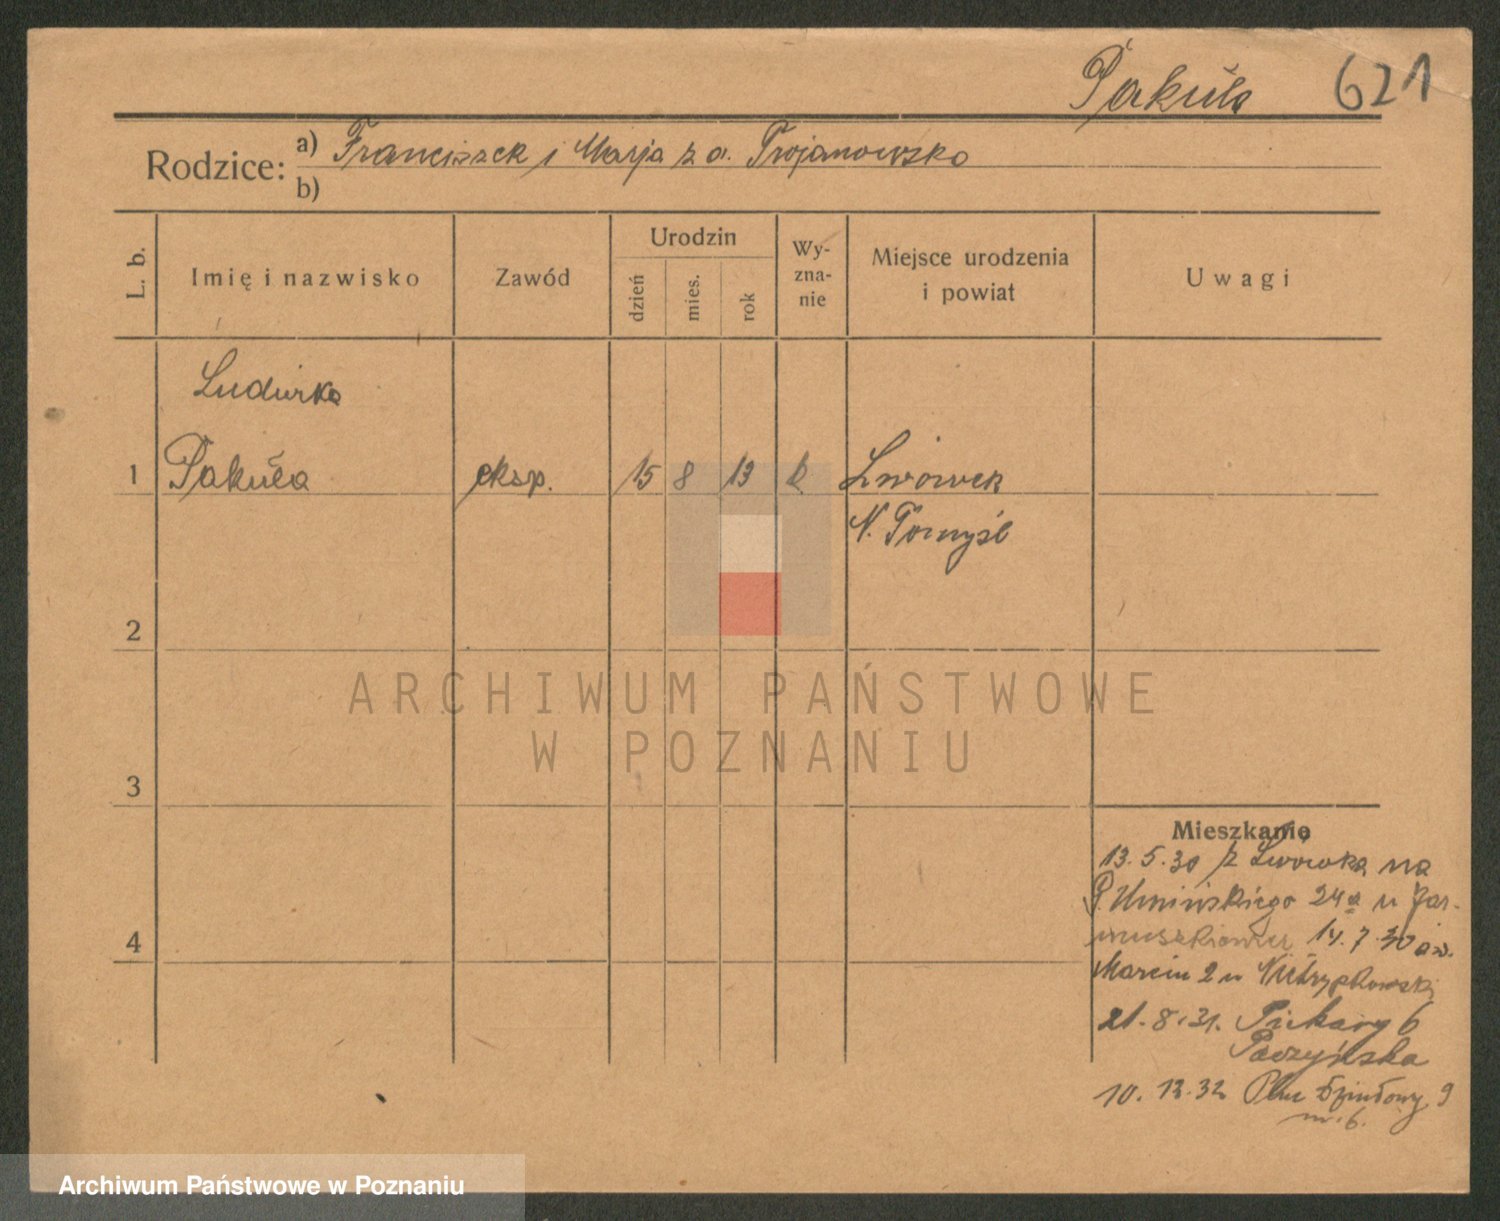 Pakuła 621
Rodzice: a) Franciszek i Marja z d. Trojanowska
b)
L. b. Imię i nazwisko Zawód Urodzin dzień mies. rok Wy-zna-nie Miejsce urodzenia i powiat Uwagi
Ludwika
1 Pakuła eksp. 15 8 13 k Lwówek
N. Tomyśl
2
ARCHIWUM PAŃSTWOWE
W POZNANIU
3
Mieszkanie
13.5.30 z Lwówka na
P. Umińskiego 24a u Jar-
4 14.7.30 św.
Marcin 2 u
21.8.31. Piekary 6
10. 12.32 Plac 9
m. 6.
Archiwum Państwowe w Poznaniu